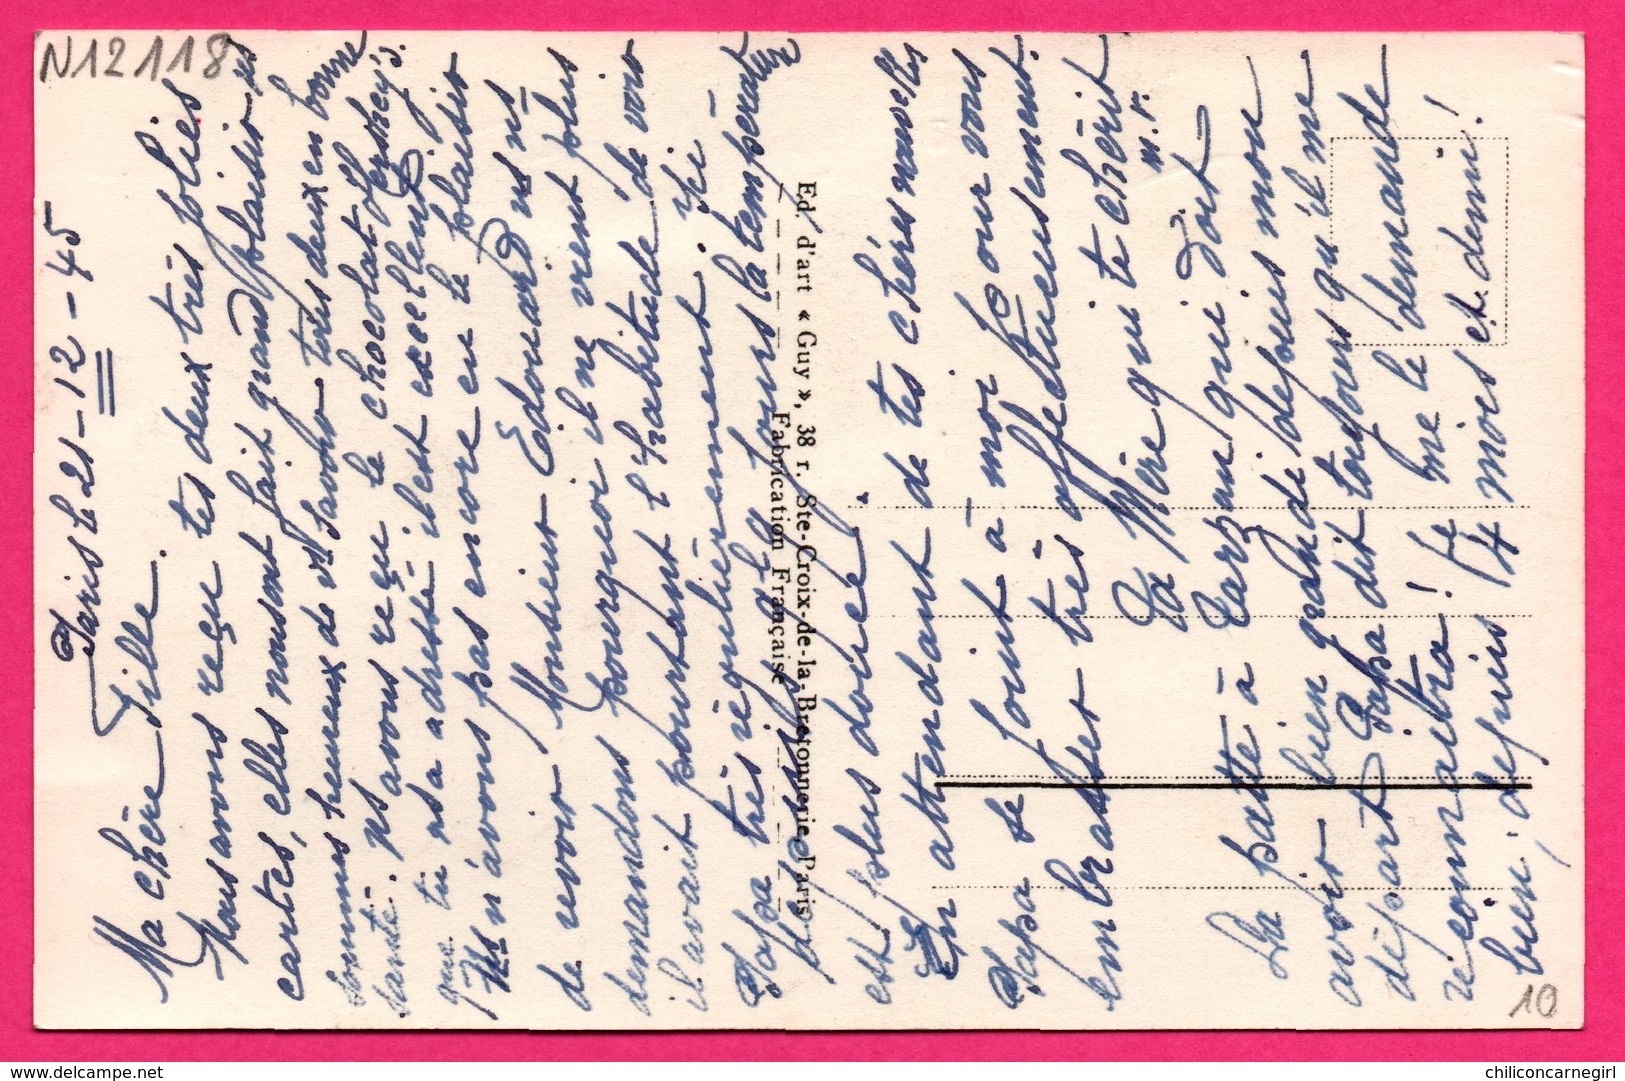 N12118
Paris le 21-12-45
Ma chère Fille.
Nous avons reçu tes deux très jolies
cartes, elles nous ont fait grand plaisir ns
sommes heureux de vs savoir tous deux en bonne
santé. ns avons reçu le chocolat Hershey's.
que tu ns a adressé il est excellent,
Ns n'avons pas encore eu le plaisir
de revoir Monsieur Edouard ns ns
demandons pourquoi il ne vient plus
il avait pourtant l'habitude de venir
Papa très régulièrement. Ici
il la température
est plus douce.
En attendant de tes chères nouvelles
Papa se joint à moi pour vous
embrasser très affectueusement.
Ta Mère qui te chérit
m. r.
La patte à Tarzan qui doit
avoir bien grandi depuis mon
départ Papa dit toujours qu'il me
reconnaîtra! Je me le demande
bien, depuis 14 mois et demi!
Ed. d'art « Guy », 38 r. Ste-Croix-de-la-Bretonnerie, Paris
Fabrication Française
10
chiliconcarnegirl - www.delcampe.net